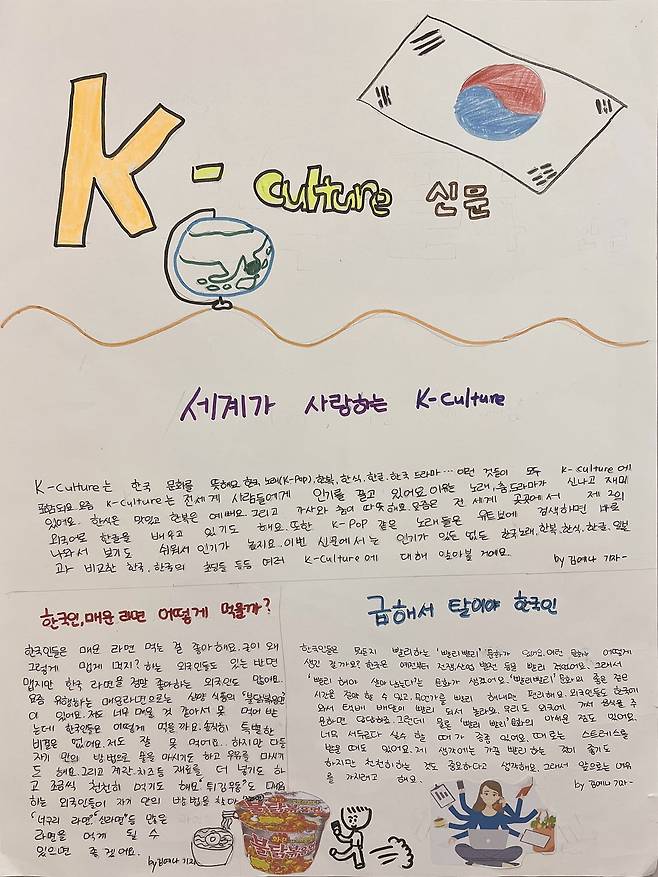 K-culture 신문
세계가 사랑하는 K-culture
K-culture는 한국 문화를 뜻해요. 한국 노래(K-Pop), 한복, 한식, 한글, 한국 드라마… 이런 것들이 모두 K-culture에
포함돼요. 요즘 K-culture는 전세계 사람들에게 인기를 끌고 있어요. 이유는 노래, 춤, 드라마가 신나고 재미
있어요. 한식은 맛있고 한복은 예뻐요. 그리고 가사와 춤이 또해요. 요즘은 전 세계 곳곳에서 제2의
외국어로 한글을 배우고 있기도 해요. 또한 K-POP 같은 노래들은 유튜브에 검색하면 바로
나와서 보기도 쉬워서 인기가 높지요. 이번 신문에서는 인기가 있든 없든 한국노래, 한복, 한식, 한글, 일본
과 비교한 한국, 한국의 초딩들 등등 여러 K-culture에 대해 알아볼 거예요. by 김예나 기자-
한국인, 매운 라면 어떻게 먹을까?
한국인들은 매운 라면 먹는 걸 좋아해요. 굳이 왜
그렇게 맵게 먹지? 하는 외국인들도 있는 반면
맵지만 한국 라면을 정말 좋아하는 외국인도 많아요.
요즘 유행하는 매운라면으로는 삼양 식품의 '불닭볶음면'
이 있어요. 저도 너무 매울 것 같아서 못 먹어 봤
는데 한국인들은 어떻게 먹을까요. 솔직히 특별한
비결은 없어요. 저도 잘 못 먹어요.. 하지만 다들
자기 만의 방법으로 물을 마시기도 하고 우유를 마시기
도 해요. 그리고 계란, 치즈 등 재료를 더 넣기도 하
고 조금씩 천천히 먹기도 해요. 튀김우동도 매워
하는 외국인들이 자기 만의 방법을 찾아
"너구리 라면", "신라면"등 많은
라면을 먹게 될 수
있으면 좋겠어요.
by 김예나 기자
급해서 탈이야 한국인
한국인들은 뭐든지 빨리하는 '빨리빨리' 문화가 있어요. 이런 문화는 어떻게
생긴 걸까요? 한국은 예전부터 전쟁, 산업 발전 등을 빨리 겪었어요. 그래서
'빨리 해야 살아남는다'는 문화가 생겼어요. '빨리빨리' 문화의 좋은 점은
시간을 절약 할 수 있고, 무언가를 빨리 해내면 편리해요. 외국인들도 한국에
와서 택배 배송이 빨리 되서 놀라요. 우리도 외국에 가서 음식을 주
문하면 답답하죠. 그런데 물론 '빨리 빨리' 문화의 아쉬운 점도 있어요.
너무 서두르다 실수 할 때가 종종 있어요. 때로는 스트레스를
받을 때도 있어요. 제 생각에는 가끔 빨리 하는 것이 좋기도
하지만 천천히하는 것도 중요하다고 생각해요. 그래서 앞으로는 여유
를 가지려고 해요. by 김예나 기자-
불닭볶음면